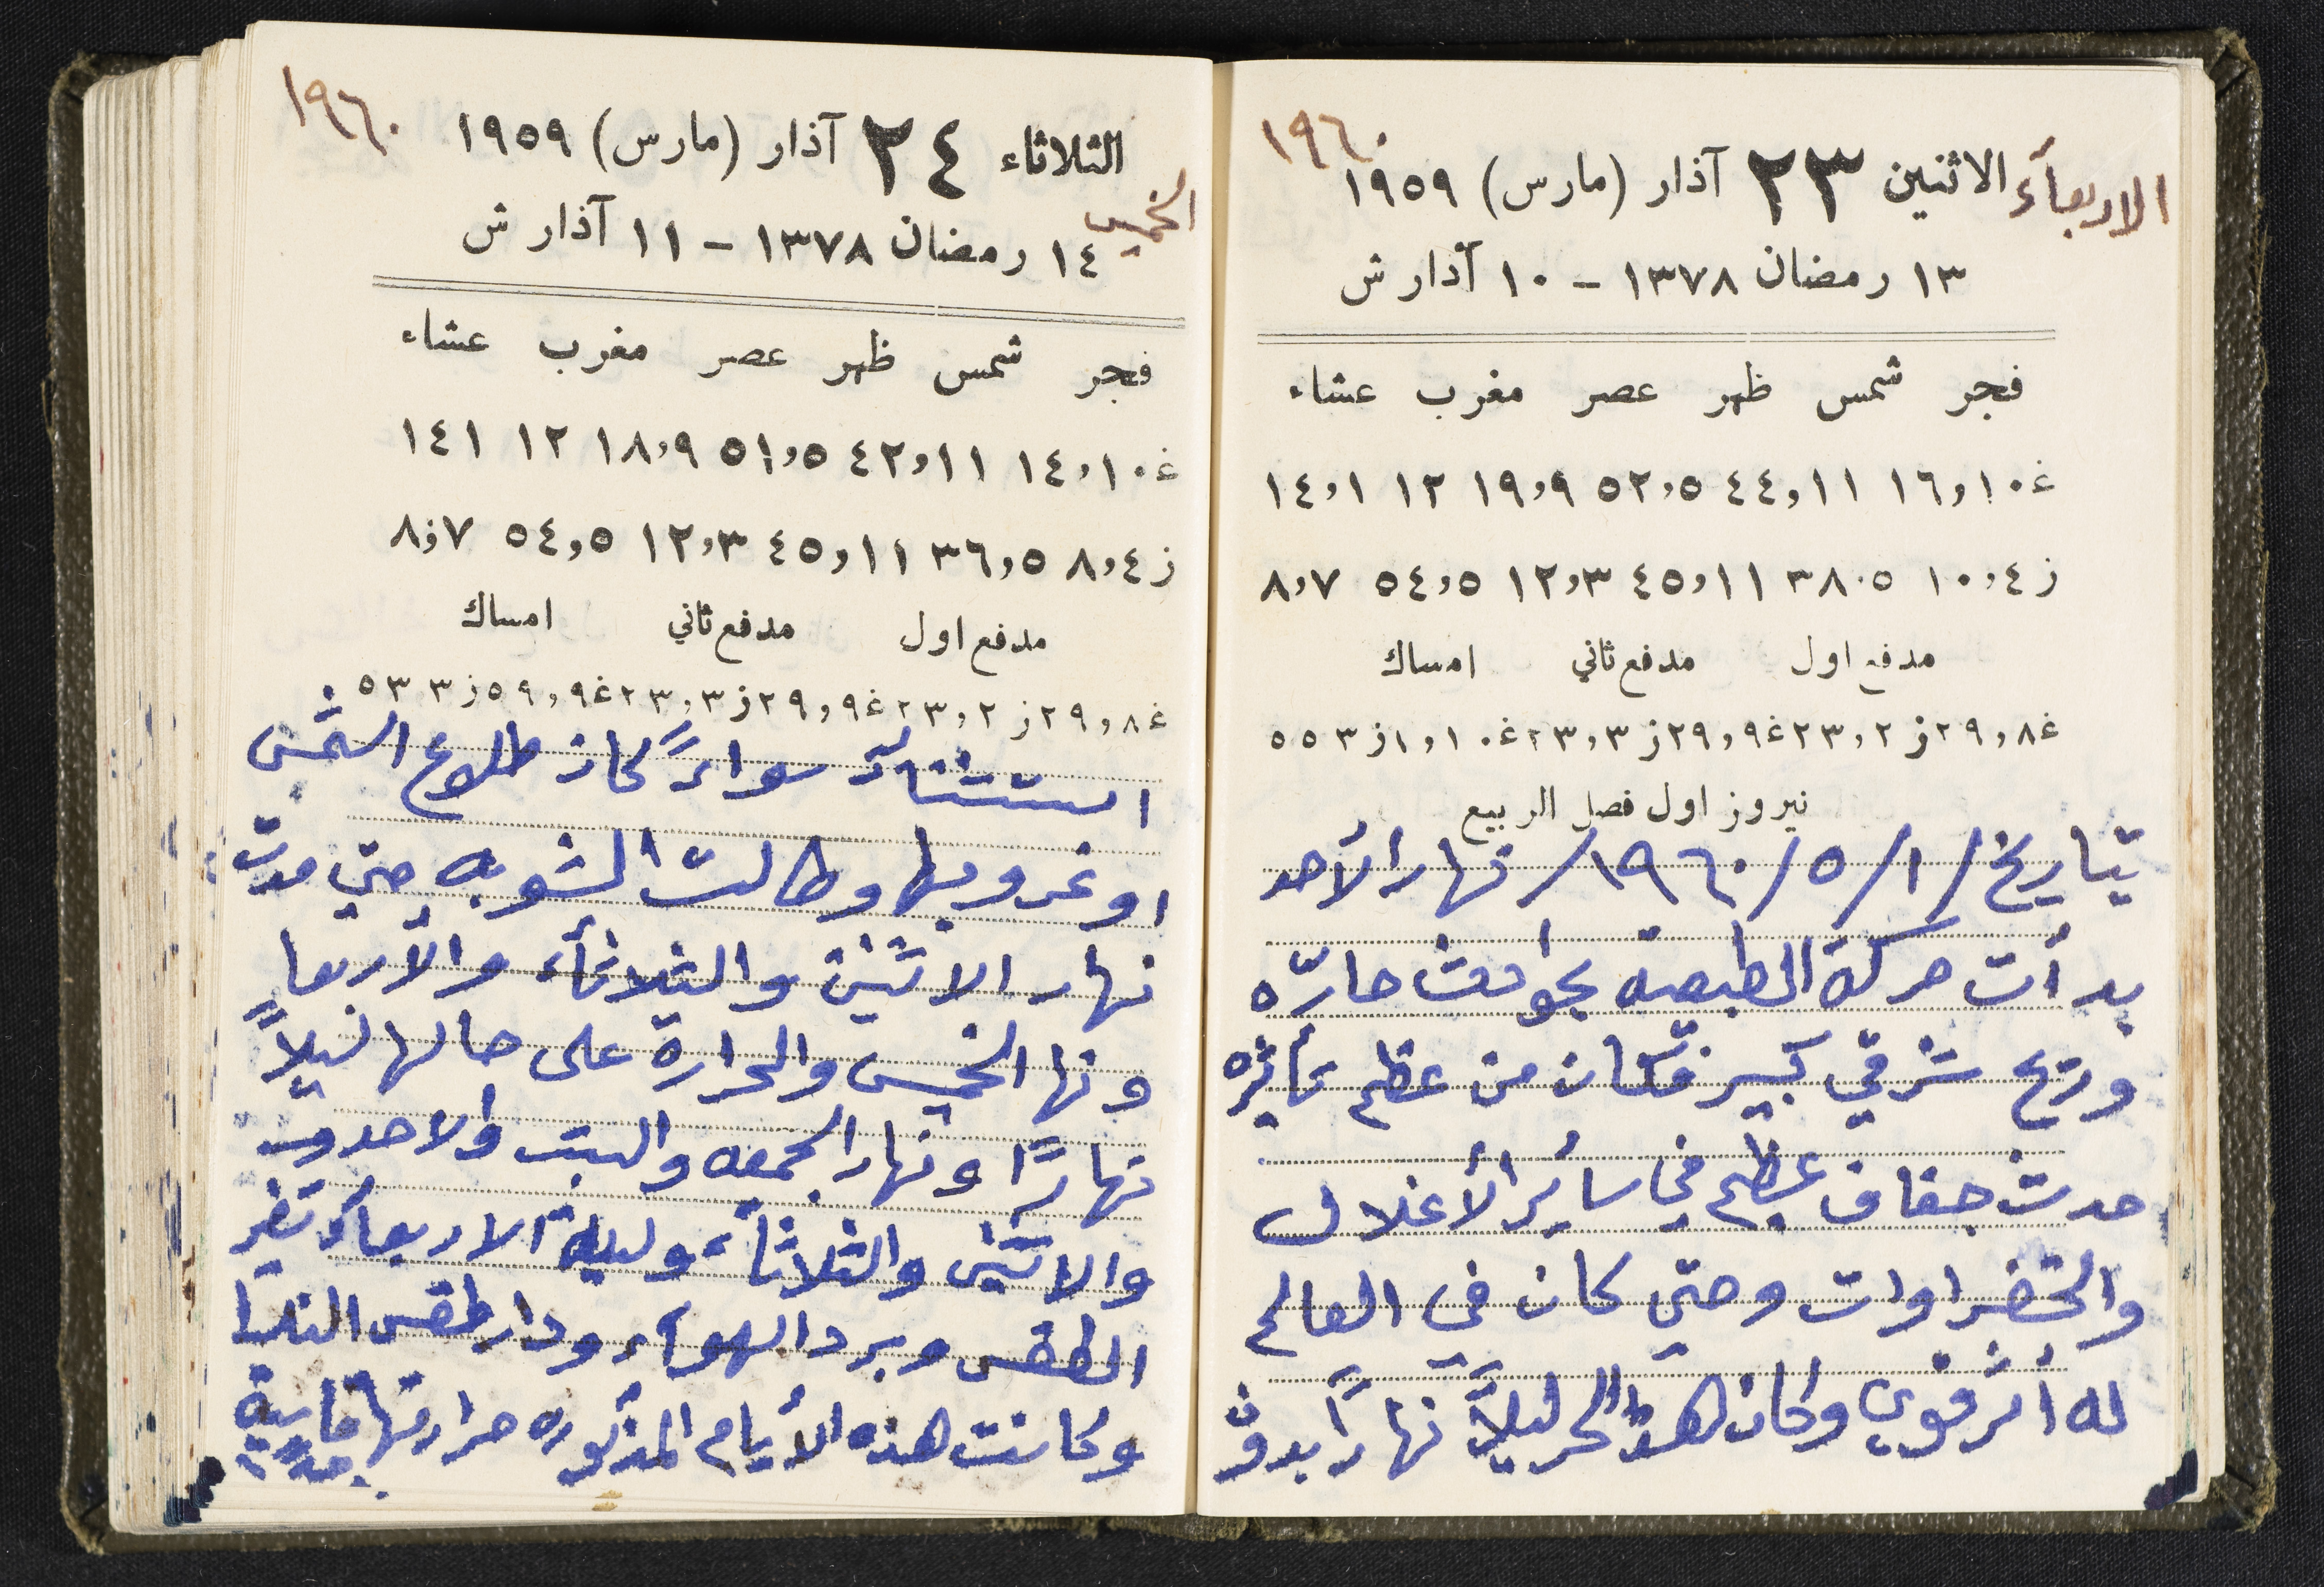 ١٩٦٠
الاربعاء الاثنين ٢٣ آذار (مارس) ١٩٥٩
١٣ رمضان ١٣٧٨ - ١٠ آذار ش
فجر شمس ظهر عصر مغرب عشاء
غ١٠,١٦ ١١,٤٤ ٥,٥٢ ٩,١٩ ١٢ ١,١٤
ز٤,١٠ ٥.٣٨ ١١,٤٥ ٣,١٢ ٥,٥٤ ٧,٨
مدفع اول مدفع ثاني امساك
غ٨,٢٩ ز٢,٢٣ غ٩,٢٩ ز٣,٢٣ غ١٠,١ ز٣ ٥٥
نيروز اول فصل الربيع
بتاريخ /١/٥/١٩٦٠/ نهار الأحد
بدأت حركة الطبيعه بجوامث حارّه
وريح شرقي كبير فكان من عظم تأثره
حدث جفاف عظيم في سائر الأغلال
والخضراوات وحتى كان في العالم
له أثر قوي وكان هذا الحر ليلاً نهاراً بدون
١٩٦٠
الثلاثاء ٢٤ آذار (مارس) ١٩٥٩
الخميس
١٤ رمضان ١٣٧٨ - ١١ آذار ش
فجر شمس ظهر عصر مغرب عشاء
غ١٠,١٤ ١١,٤٢ ٥,٥١ ٩,١٨ ١٢ ١٤١
ز٤,٨ ٥,٣٦ ١١,٤٥ ٣,١٢ ٥,٥٤ ٧,٨
مدفع اول مدفع ثاني امساك
غ٨,٢٩ ز٢,٢٣ غ٩,٢٩ ز٣,٢٣ غ٩,٥٩ ز٣ ٥٣
استثناء سواءً كان طلوع الشمس
او غروبها وطالت الشوبه حتى مدت
نهار الاثنين والثلاثاء والأربعا
ونها الخميس والحرارة على حالها ليلاً
نهاراً ونهار الجمعه والسبت والاحد
والاثنين والثلاثاء وليلة الاربعاء تغير
الطقس وبرد الهواء ودار طقس الندا
وكانت هذه الأيام المذكوره حرارتها قاسية
جداً